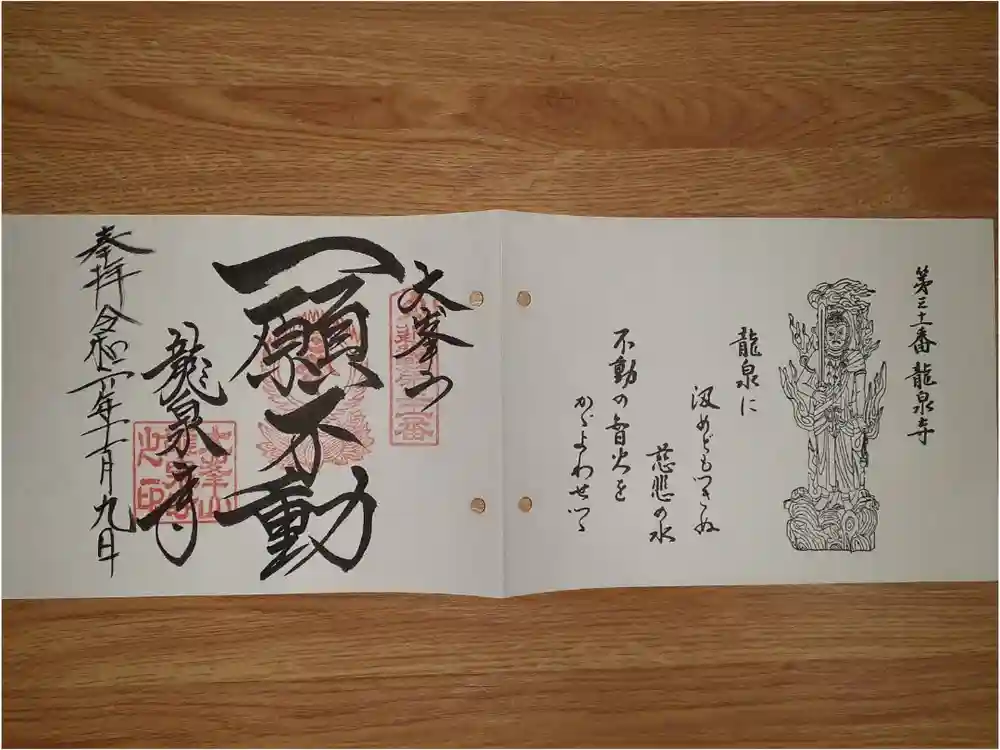 第三十一番 龍泉寺
龍泉に
汲めどもつきぬ
慈悲の水
不動の智火を
かゞよわせつゝ
大峯山
一願不動
龍泉寺
大峯山龍泉寺之印
奉拝 令和 年十一月九日